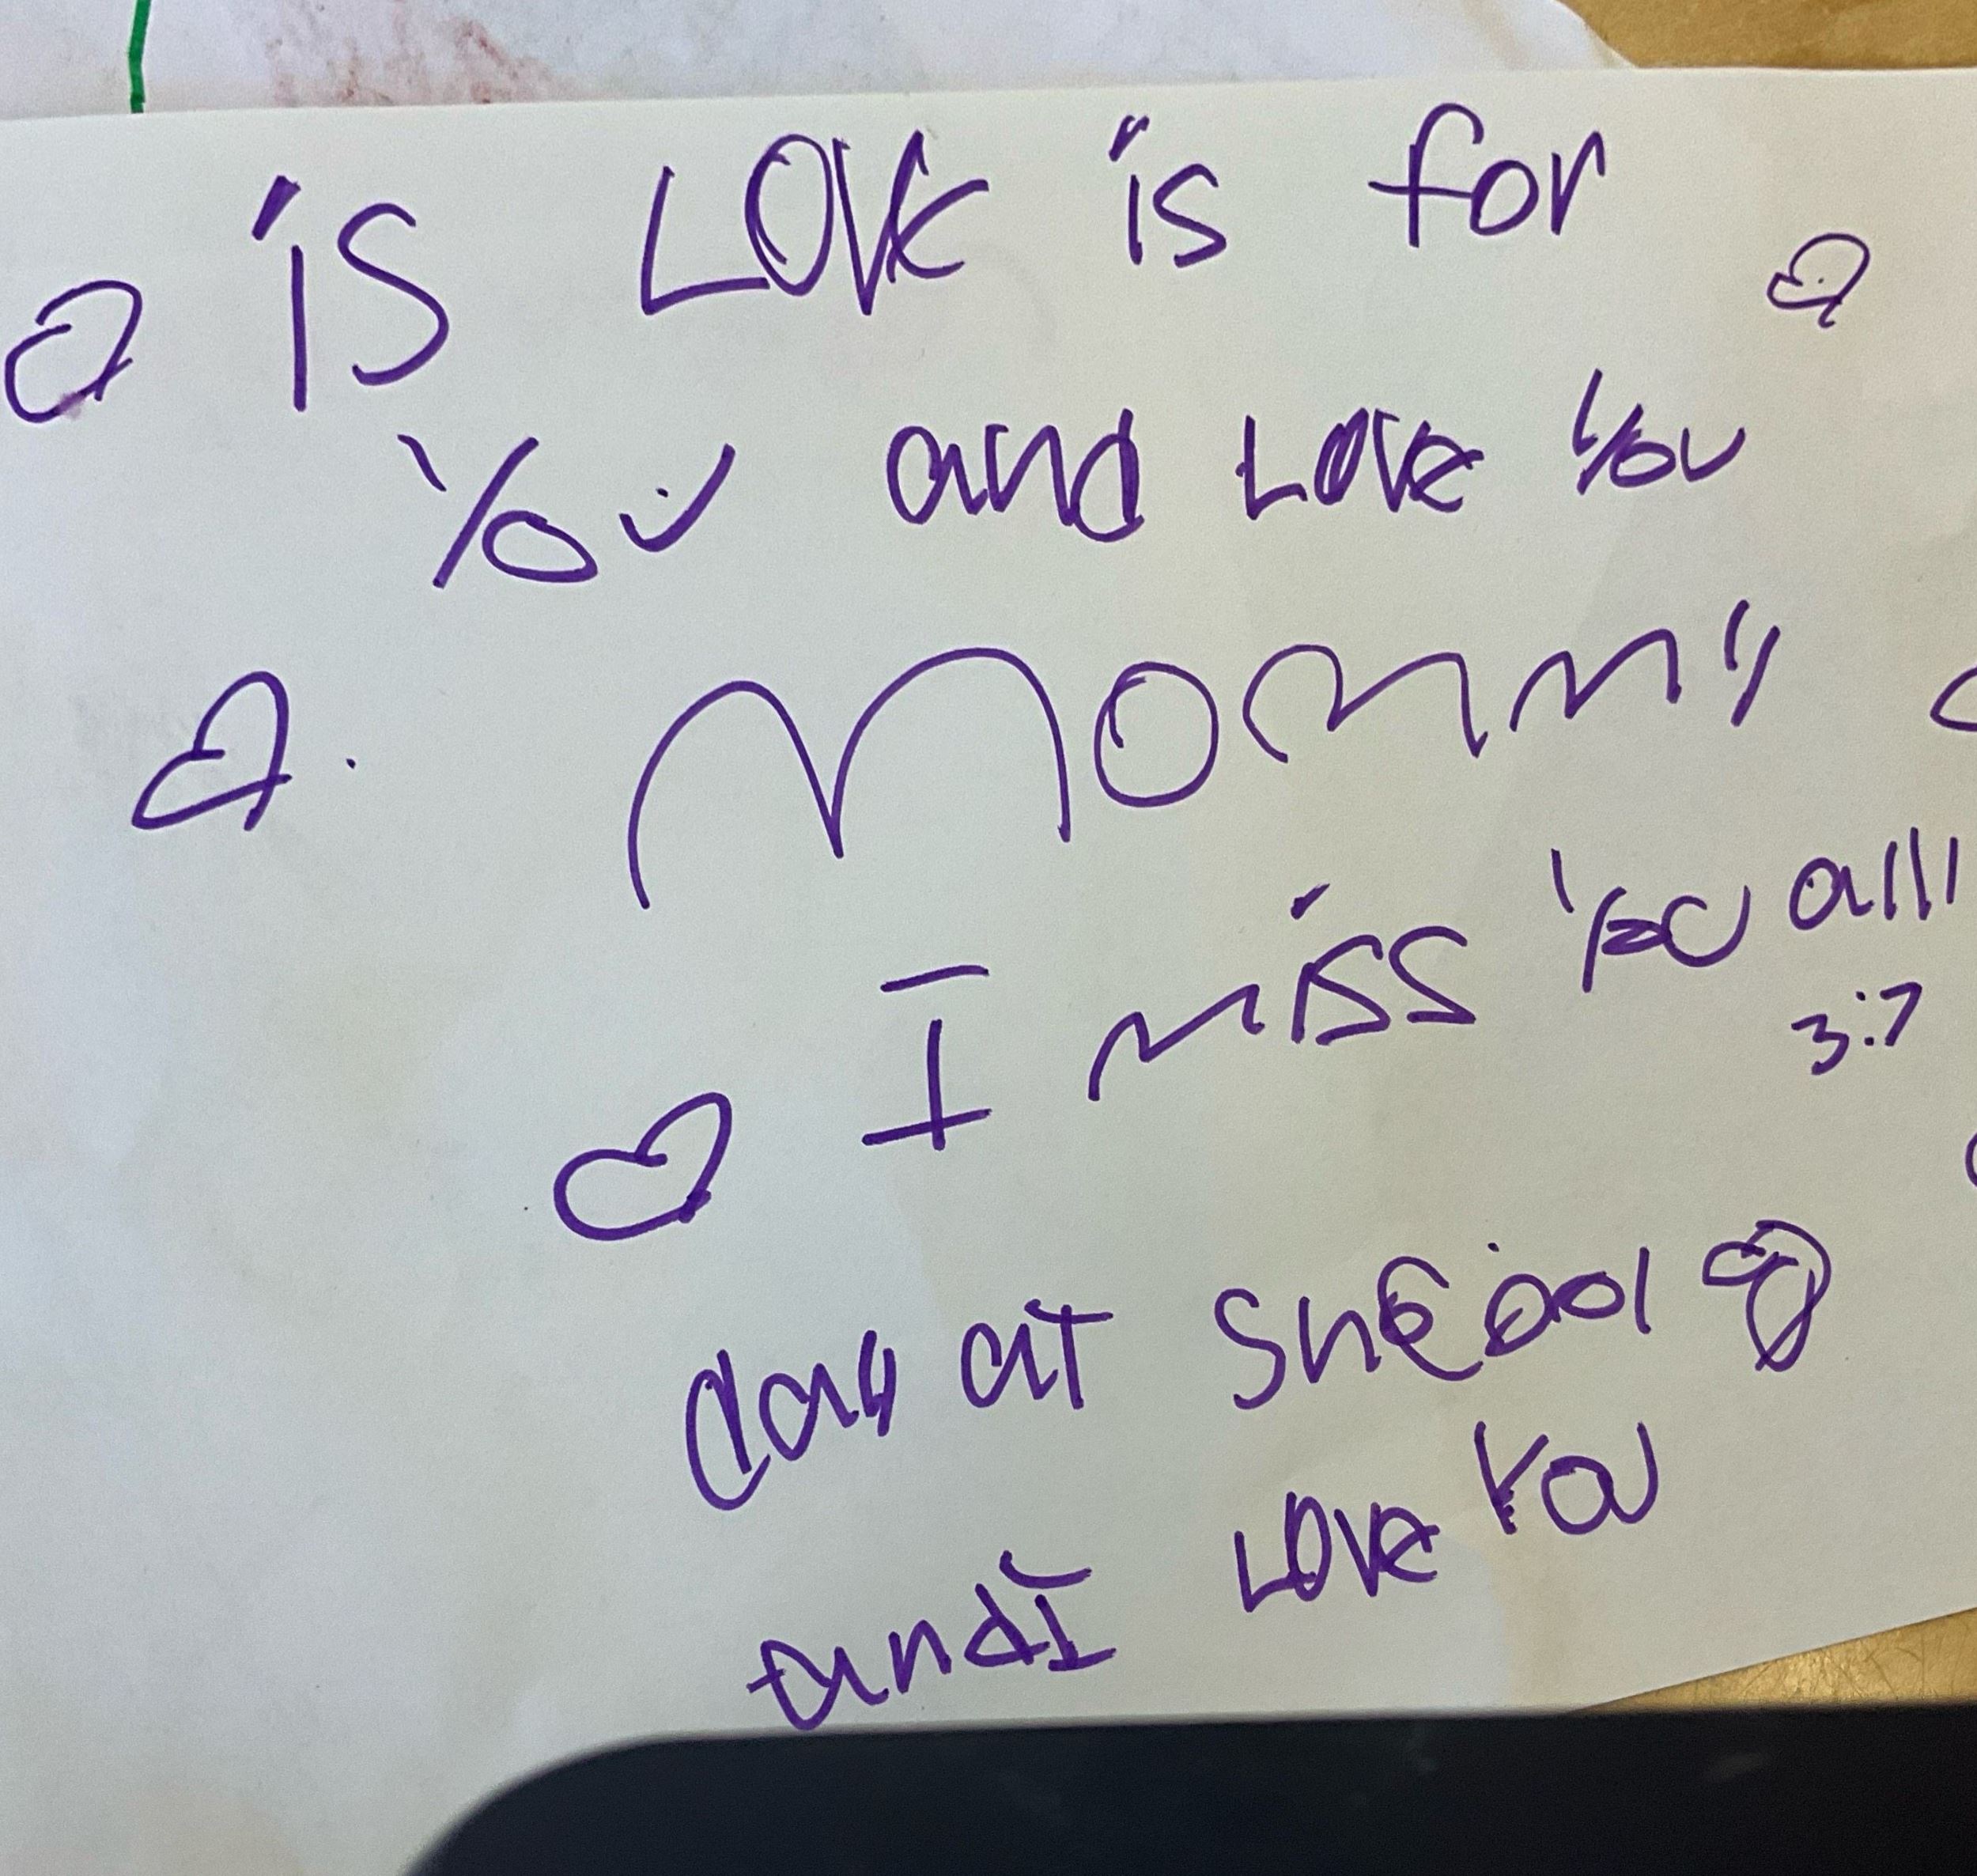 is Love is for
You and Love You
Mommy
I miss you all
3:7
day at Sheool
and I Love You